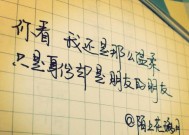 你看 我还是那么温柔
只是身份却是朋友的朋友
@陌上花